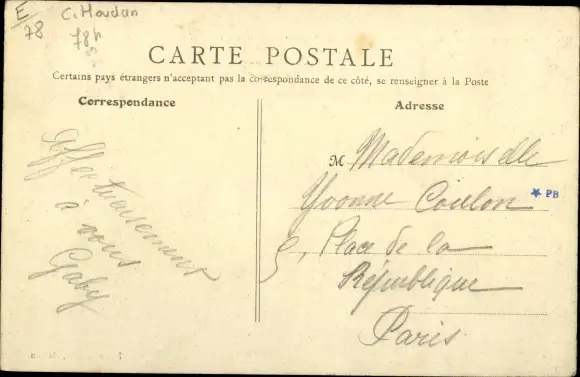 E
78
C. Houdan
78h
CARTE POSTALE
Certains pays étrangers n'acceptant pas la correspondance de ce côté, se renseigner à la Poste
Correspondance
Affectueusement
à vous
Gaby
Adresse
M Mademoiselle
Yvonne Coulon
PB
5, Place de la
République
Paris